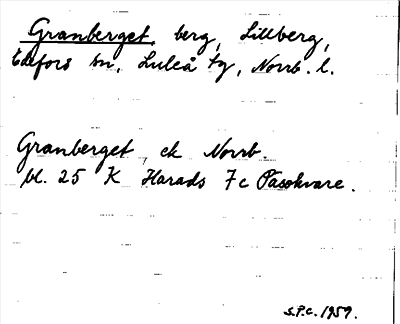 Granberget, berg, Lillberg,
Edefors sn, Luleå tg, Norrb. l.
Granberget, ek Norrb.
bl. 25 K Harads 7c Påsokvare.
S.P.C. 1959.